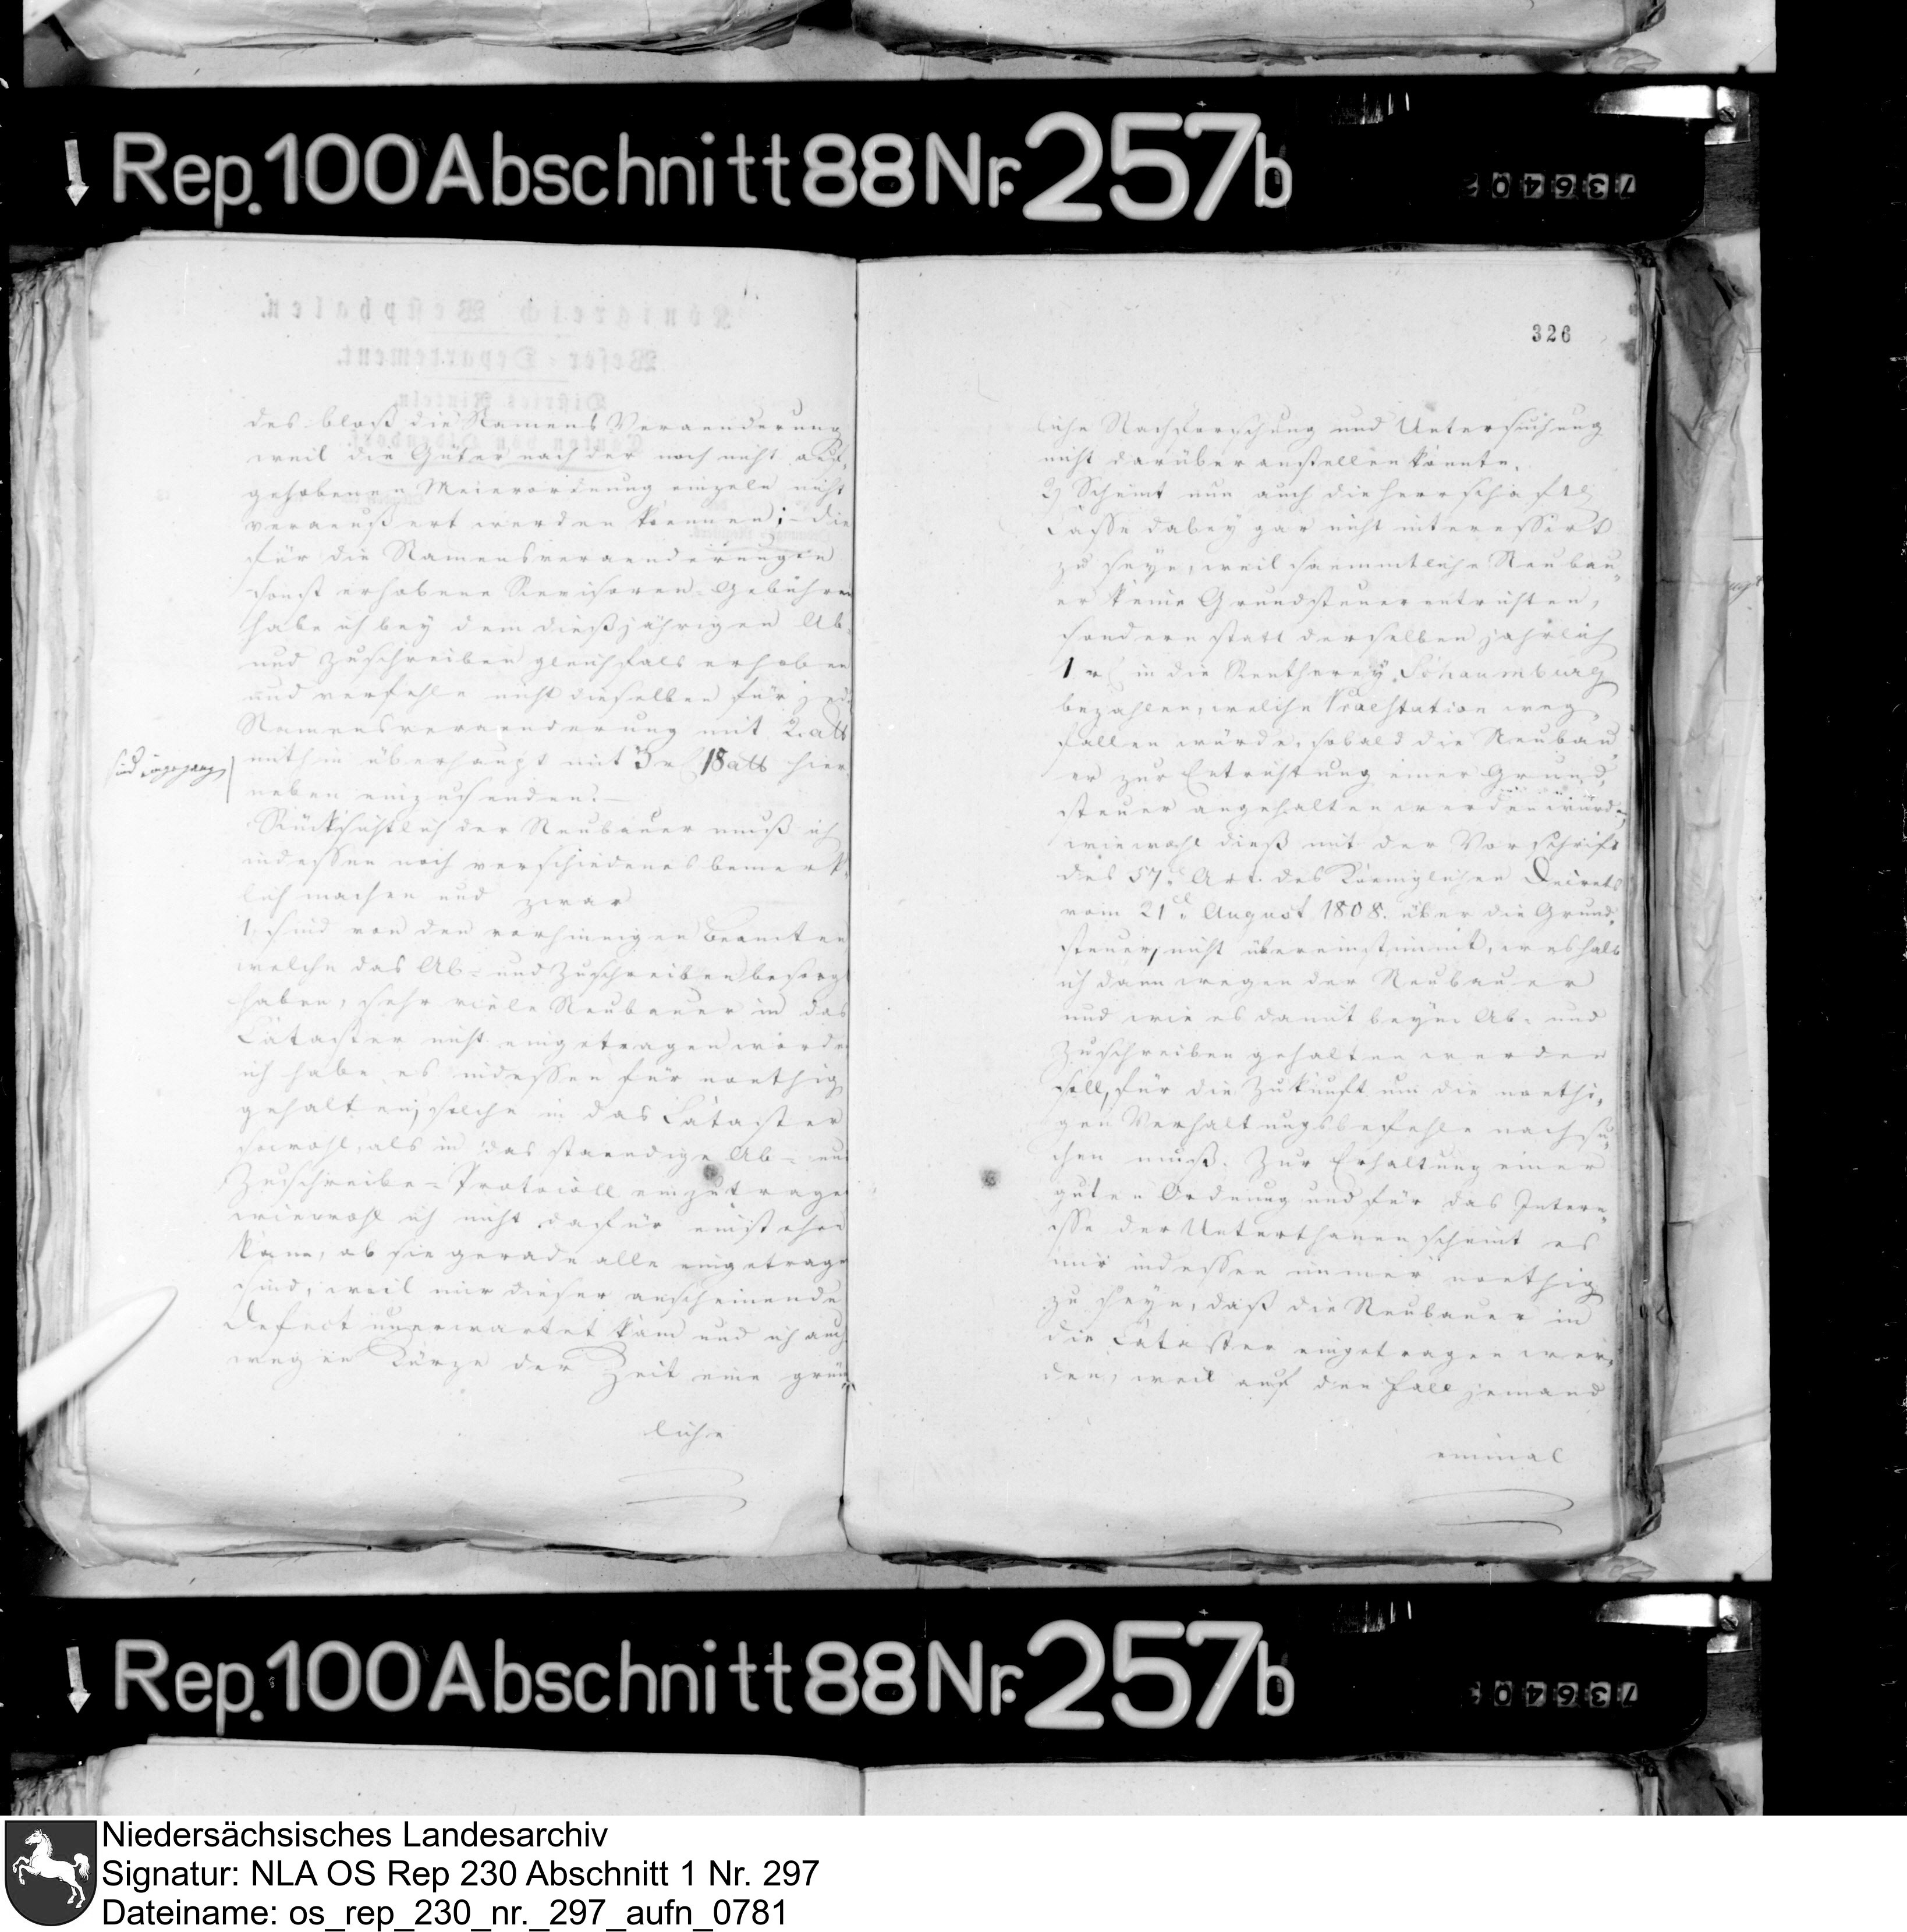 Rep. 100 Abschnitt 88 Nr. 257b
736402
326
des bloß die Namens Veraenderung
weil die Güter nach der noch nicht auf-
gehobenen Meierordnung einzeln nicht
veraeußert werden koennen; – die
für die Namensveraenderungen
sonst erhobene Revisoren-Gebühren
habe ich bey dem dießjährigen Ab-
und Zuschreiben gleichfals erhoben
und verfehle nicht dieselben für jede
Namensveraenderung mit 2. alb
mithin überhaupt mit 3 18 alb hier-
neben einzusenden. –
sind eingegangen
Rücksichtlich der Neubauer muß ich
indessen noch verschiedenes bemerk-
lich machen und zwar
1, sind von den vorhinnigen Beamten
welche das Ab- und Zuschreiben besorgt
haben, sehr viele Neubauer in das
Cataster nicht eingetragen worden
ich habe es indessen für noethig
gehalten, solche in das Cataster
sowohl, als in das staendige Ab- und
Zuschreibe-Protocoll einzutragen
wiewohl ich nicht dafür einstehen
kann, ob sie gerade alle eingetragen
sind, weil mir dieser anscheinende
Defect unerwartet kam und ich auch
wegen Kürze der Zeit eine gründ-
liche
liche Nachforschung und Untersuchung
nicht darüber anstellen konnte.
2, Scheint nun auch die herrschaftl
Casse dabey gar nicht interessirt
zu seyn, weil saemmtliche Neubau-
er keine Grundsteuer entrichten,
sondern statt derselben jährlich
1 in die Rentherey Schaumburg
bezahlen, welche Praestation weg-
fallen würde, sobald die Neubau-
er zur Entrichtung einer Grund-
steuer angehalten werden würden,
wiewohl dieß mit der Vorschrift
des 57. Art. des Koeniglichen Decrets
vom 21. August 1808. über die Grund-
steuer, nicht übereinstimmt, weshalb
ich dann wegen der Neubauer
und wie es damit beym Ab- und
Zuschreiben gehalten werden
soll, für die Zukunft um die noethi-
gen Verhaltungsbefehle nachsu-
chen muß. Zur Erhaltung einer
guten Ordnung und für das Intere-
sse der Unterthanen scheint es
mir indessen immer noethig
zu seyn, daß die Neubauer in
die Cataster eingetragen wer-
den, weil auf den Fall jemand
einmal
Rep. 100 Abschnitt 88 Nr. 257b
Niedersächsisches Landesarchiv
Signatur: NLA OS Rep 230 Abschnitt 1 Nr. 297
Dateiname: os_rep_230_nr._297_aufn_0781